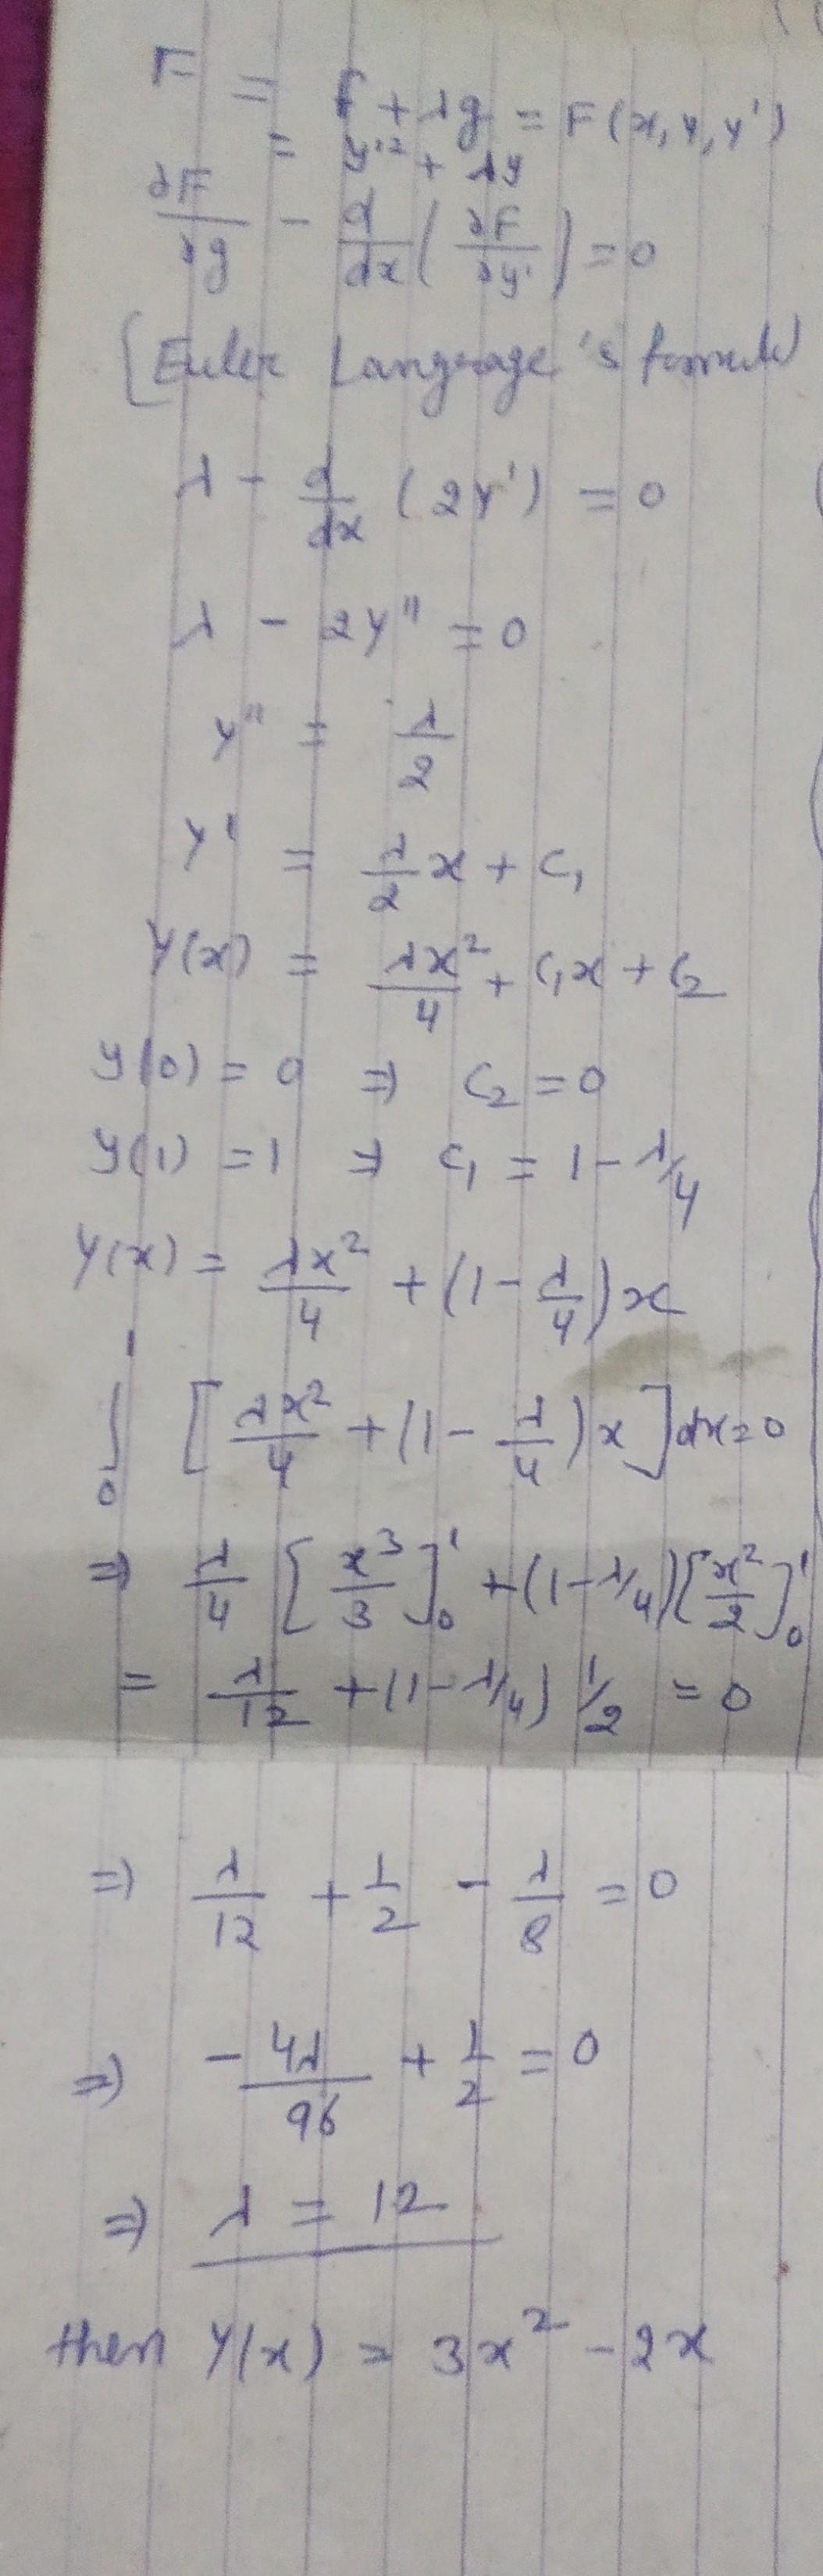 F = f + λg = F(x, y, y')
= y'² + λy
∂F/∂y - d/dx (∂F/∂y') = 0
[Euler Language's formula]
λ - d/dx (2y') = 0
λ - 2y" = 0
y" = λ/2
y' = λ/2 x + c₁
y(x) = λx²/4 + c₁x + c₂
y(0) = 0 ⇒ c₂ = 0
y(1) = 1 ⇒ c₁ = 1 - λ/4
y(x) = λx²/4 + (1 - λ/4)x
∫₀¹ [λx²/4 + (1 - λ/4)x] dx = 0
⇒ λ/4 [x³/3]₀¹ + (1 - λ/4)[x²/2]₀¹
= λ/12 + (1 - λ/4) 1/2 = 0
⇒ λ/12 + 1/2 - λ/8 = 0
⇒ -4λ/96 + 1/2 = 0
⇒ λ = 12
then y(x) = 3x² - 2x